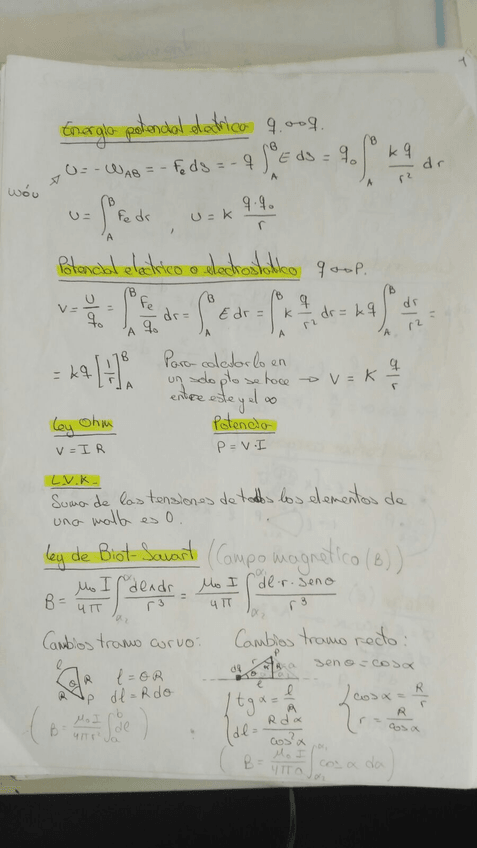 1
Energía potencial eléctrica q₀ ∞ q.
U = -W_AB = -F_e ds = -q ∫_A^B E ds = q₀ ∫_A^B kq/r² dr
U = ∫_A^B F_e dr , U = k q·q₀/r
Potencial eléctrico o electrostático q ∞ P.
V = U/q₀ = ∫_A^B F_e/q₀ dr = ∫_A^B E dr = ∫_A^B k q/r² dr = kq ∫_A^B dr/r² =
= kq [1/r]_A^B Para calcularlo en
un solo pto se hace → V = K q/r
entre este y el ∞
Ley Ohm Potencia
V = I R P = V·I
L.V.K.
Suma de las tensiones de todos los elementos de
una malla es 0.
Ley de Biot-Savart (Campo magnético (B))
B = μ₀ I/4π ∫ dl∧dr/r³ = μ₀ I/4π ∫ dl·r·senθ/r³
Cambios tramo curvo: Cambios tramo recto:
l R R P l = θR
dl = R dθ
(B = μ₀ I/4πr² ∫_a^b dl)
dl r θ R P l senθ = cosα
tgα = l/R
dl = R dα/cos²α
cosα = R/r
r = R/cosα
(B = μ₀ I/4πa ∫ cosα dα)